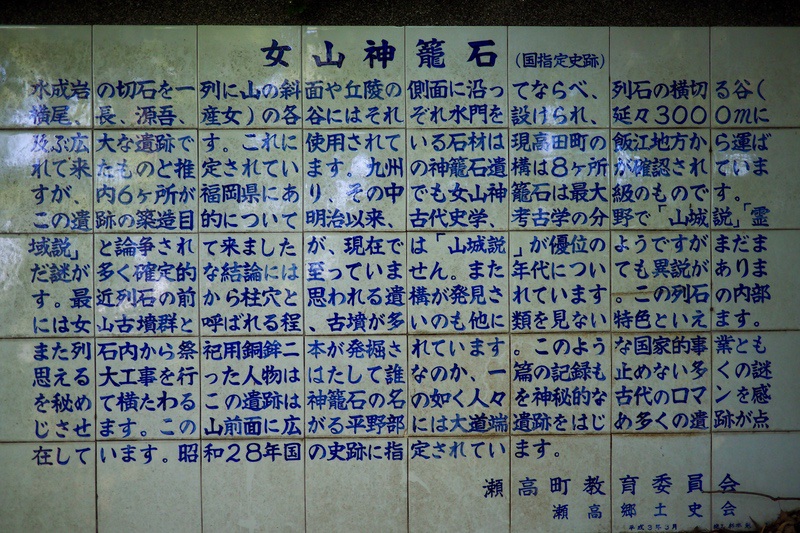 女山神籠石(国指定史跡)
水成岩の切石を一列に山の斜面や丘陵の側面に沿ってならべ、列石の横切る谷(
横尾、長、源吾、産女)の各谷にはそれぞれ水門を設けられ、延々3000mに
及ぶ広大な遺跡です。これに使用されている石材は現高田町の飯江地方から運ば
れて来たものと推定されています。九州の神籠石遺構は8ヶ所が確認されていま
すが、内6ヶ所が福岡県にあり、その中でも女山神籠石は最大級のものです。
この遺跡の築造目的について明治以来、古代史学、考古学の分野で「山城説」霊
域説」と論争されて来ましたが、現在では「山城説」が優位のようですがまだま
だ謎が多く確定的な結論には至っていません。また年代についても異説がありま
す。最近列石の前から柱穴と思われる遺構が発見されています。この列石の内部
には女山古墳群と呼ばれる程、古墳が多いのも他に類を見ない特色といえます。
また列石内から祭祀用銅鉾二本が発掘されています。このような国家的事業とも
思える大工事を行った人物ははたして誰なのか、一篇の記録も止めない多くの謎
を秘めて横たわるこの遺跡は神籠石の名の如く人々を神秘的な古代のロマンを感
じさせます。この山前面に広がる平野部には大道端遺跡をはじめ多くの遺跡が点
在しています。昭和28年国の史跡に指定されています。
瀬高町教育委員会
瀬高郷土史会
平成3年3月